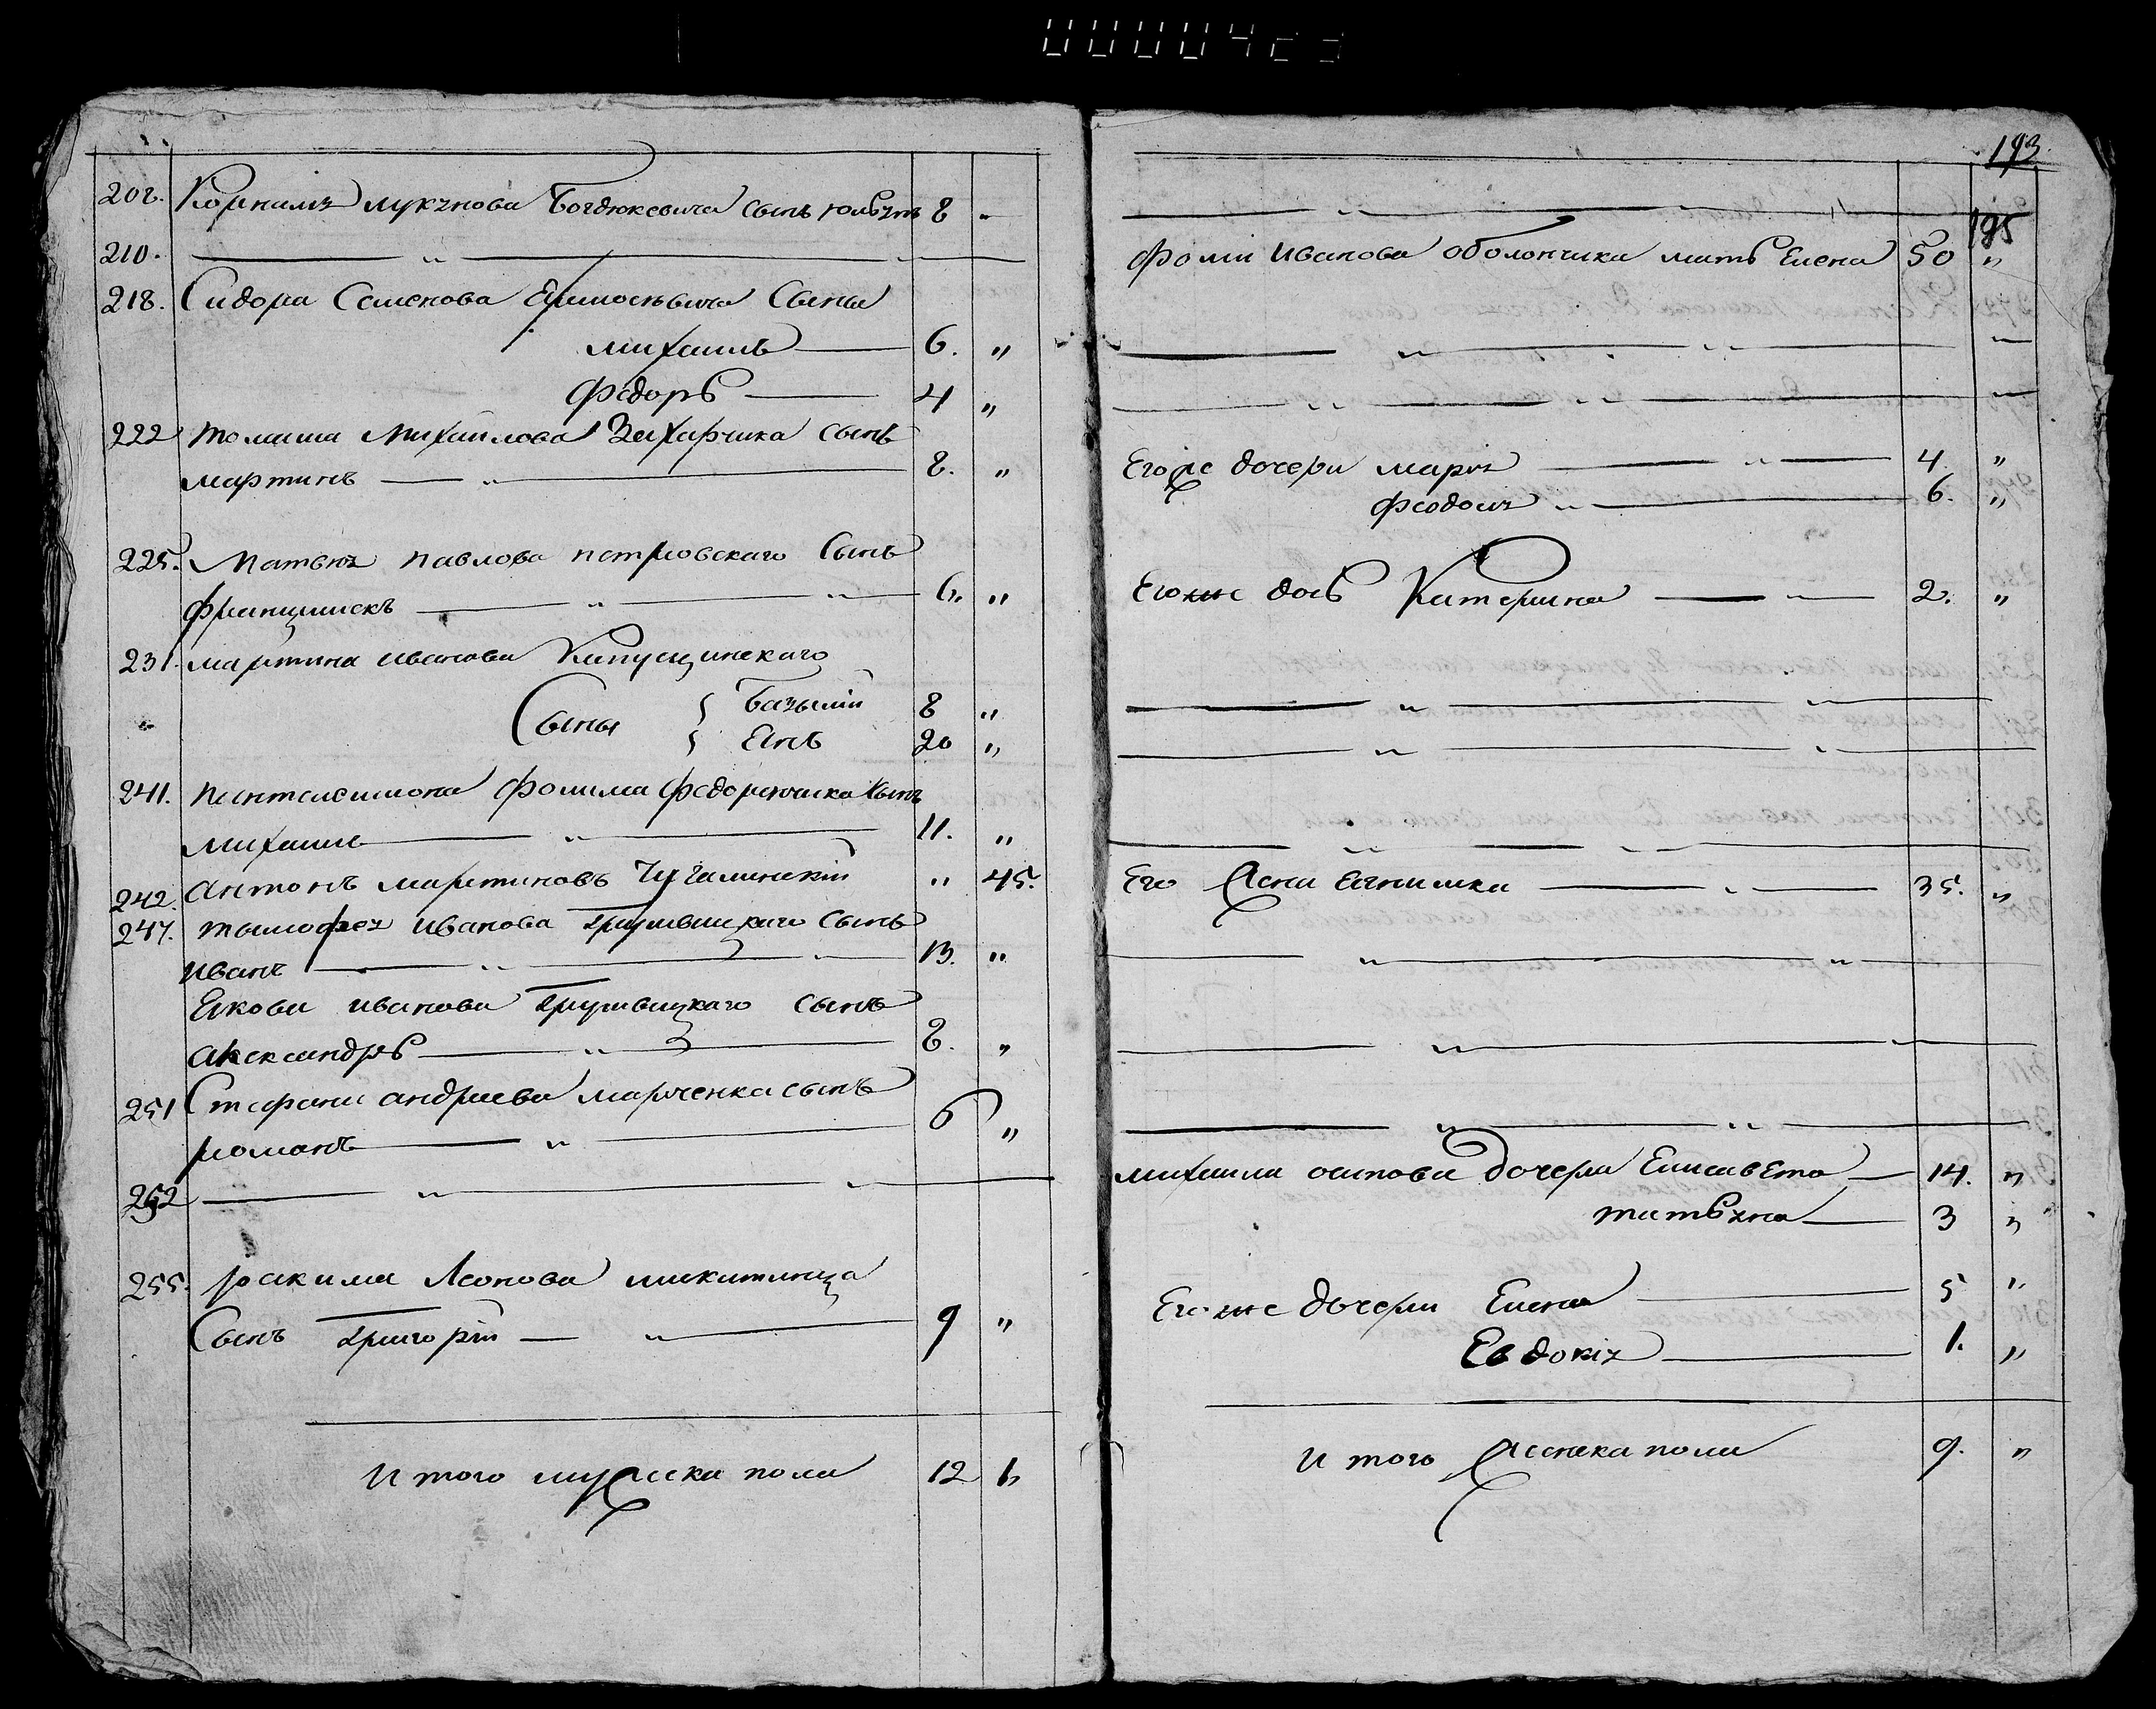 193.
195
208. Корнилия лукянова Богдюкевича сынъ юльянъ 8 "
210. — " —
218. Сидора Семенова Ермосѣвича Сыны
михаилъ — 6. "
Федоръ — 4 "
222 томаша Михайлова Захарчика сынъ
мартинъ — " — 8. "
225. Матвѣя павлова петровскаго Сынъ
францишекъ — " — " 6. "
231. мартина иванова Капусцинскаго
Сыны { Базылiй 8 "
{ Янъ 20 "
241. пантелеимона фомима федоренчика сынъ
михаилъ — " — 11. "
242. антонъ мартиновъ Чугалинскiй " 45.
247. тымофея иванова Грушвицкаго сынъ
иванъ — " — 13. "
Якова иванова Грушвицкаго сынъ
александръ — " — 8. "
251 Стефана андреева марченка сынъ
романъ — " — 6 "
252 — " — "
255. иоакима Леонова микитинца
Сынъ Григорiй — " — 9 "
И того мужеска пола 12 1,
— " — "
фомы иванова оболончика мать Елена 50 "
— " — " —
— " — " —
Его же дочери марiя — " — 4. "
феодосiя " — 6. "
Его же дочь Катерина — 2. "
— " — "
— " — "
— " — " —
Его жена Ягнишка — " — 35. "
— " — "
— " — "
— " — " —
михаила осипова дочери Елисавета — 14. "
татьяна — 3 "
Его же дочери Елена — 5 "
Евдокiя — 1. "
и того женска пола 9. "